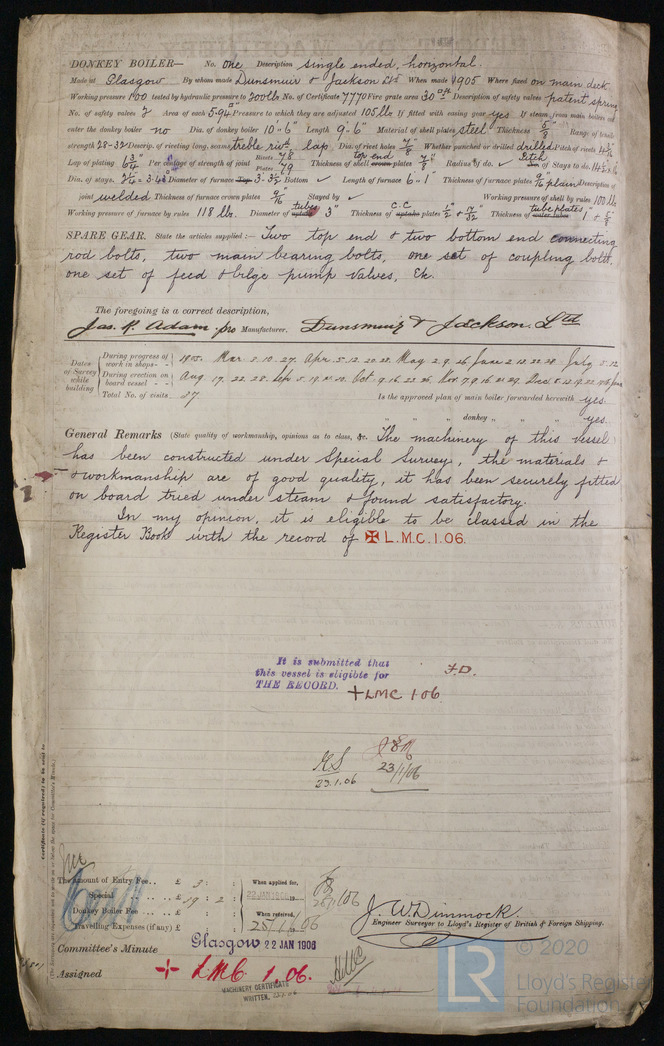 DONKEY BOILER— No. One Description Single ended, horizontal.
Made at Glasgow By whom made Dunsmuir & Jackson Ltd When made 1905 Where fixed on main deck
Working pressure 100 tested by hydraulic pressure to 200 lbs No. of Certificate 7770 Fire grate area 30 Description of safety valves patent spring
No. of safety valves 2 Area of each 5.94" Pressure to which they are adjusted 105 lbs If fitted with easing gear yes If steam from main boilers can
enter the donkey boiler no Dia. of donkey boiler 10'-6" Length 9'-6" Material of shell plates steel Thickness 5/8" Range of tensile
strength 28-32 Descrip. of riveting long. seams treble riv. lap Dia. of rivet holes 7/8" Whether punched or drilled drilled Pitch of rivets
Lap of plating 6 3/4" Per centage of strength of joint Rivets 78 Plates 79 Thickness of shell crown plates top end 7/8" Radius of do. ✓ Pitch of Stays to do.
Dia. of stays. Diameter of furnace Top 3.3 1/2" Bottom ✓ Length of furnace 6'-1" Thickness of furnace plates 9/16" plain Description of
joint welded Thickness of furnace crown plates 9/16" Stayed by ✓ Working pressure of shell by rules 100 lbs
Working pressure of furnace by rules 118 lbs. Diameter of uptake tubes 3" Thickness of uptake plates C.C. 1/2" & 17/32" Thickness of water tubes tube plates 1" & 5/8"
SPARE GEAR. State the articles supplied:— Two top end & two bottom end connecting
rod bolts, two main bearing bolts, one set of coupling bolts,
one set of feed & bilge pump valves, &c.
The foregoing is a correct description,
Jas. R. Adam pro Manufacturer. Dunsmuir & Jackson. Ltd
Dates of Survey while building
During progress of work in shops- - 1905. Mar. 3. 10. 27. Apr. 5. 12. 20. 28. May 2. 9. 26 June 2. 12. 22. 28. July 5. 12
During erection on board vessel - - Aug 17. 22. 28. Sep 5. Oct 9. 16. 22. 26. Nov 7. 9. 16. 21. 29. Dec
Total No. of visits 37 Is the approved plan of main boiler forwarded herewith yes.
" " " donkey " " " yes.
General Remarks (State quality of workmanship, opinions as to class, &c. The machinery of this vessel
has been constructed under Special Survey, the materials &
& workmanship are of good quality, it has been securely fitted
on board tried under steam & found satisfactory.
In my opinion, it is eligible to be classed in the
Register Book with the record of ✠ L.M.C. 1.06.
It is submitted that
this vessel is eligible for
THE RECORD. + LMC 1.06
F.D.
23.1.06
23/1/06
Certificate (if required) to be sent to
The amount of Entry Fee.. £ 3 : :
Special .. .. £ 19 : 2 :
Donkey Boiler Fee .. .. £ : :
Travelling Expenses (if any) £ : :
When applied for,
22 JAN 1906
When received,
25/1/06
J. W. Dimmock.
Engineer Surveyor to Lloyd's Register of British & Foreign Shipping.
Committee's Minute Glasgow 22 JAN 1906
Assigned + L.M.C. 1.06.
MACHINERY CERTIFICATE
WRITTEN.
© 2020
LR
Lloyd's Register
Foundation